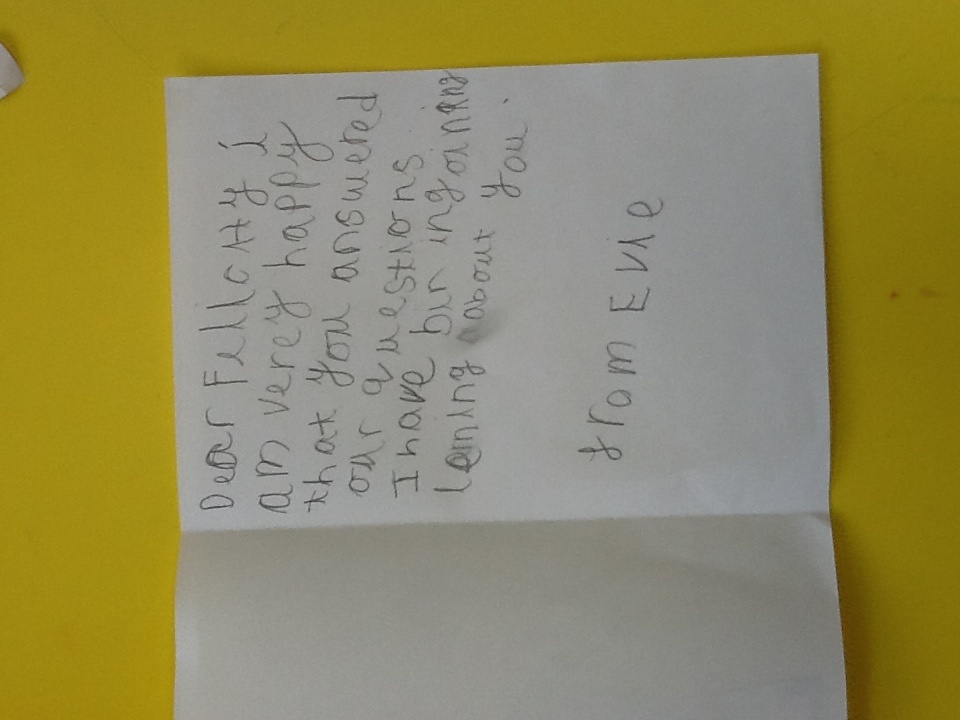 Dear Fellcity i
am verey happy
that you answered
our questions
I have bin ingoining
lerning about you.
from Evie